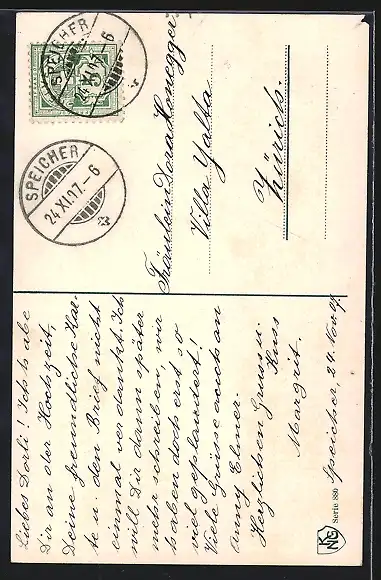 SPEICHER
24 XI 07.– 6
SPEICHER
24 XI 07.– 6
Fräulein Dora Honegger
Villa Yalta
Zürich.
Speicher, 24. Nov. 07
Liebes Dorli! Ich habe
Dir an der Hochzeit,
Deine freundliche Kar-
te u. den Brief nicht
einmal verdankt. Ich
will Dir dann später
mehr schreiben, wir
haben doch erst so
viel geplaudert!
Viele Grüsse auch an
Anny Elmer.
Herzlichen Gruss u.
Kuss
Margrit.
Serie 886